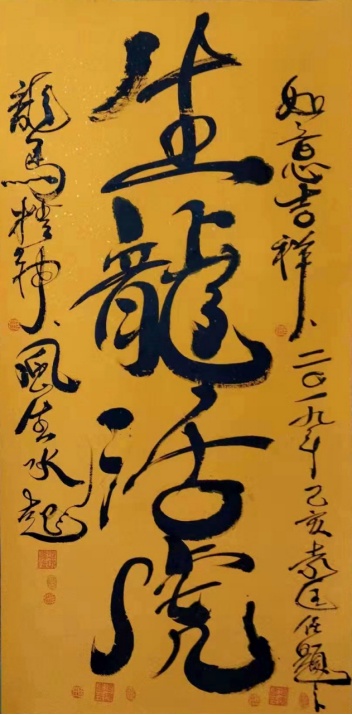 如意吉祥、二〇一九年己亥
生龍活虎
龍馬精神、風生水起